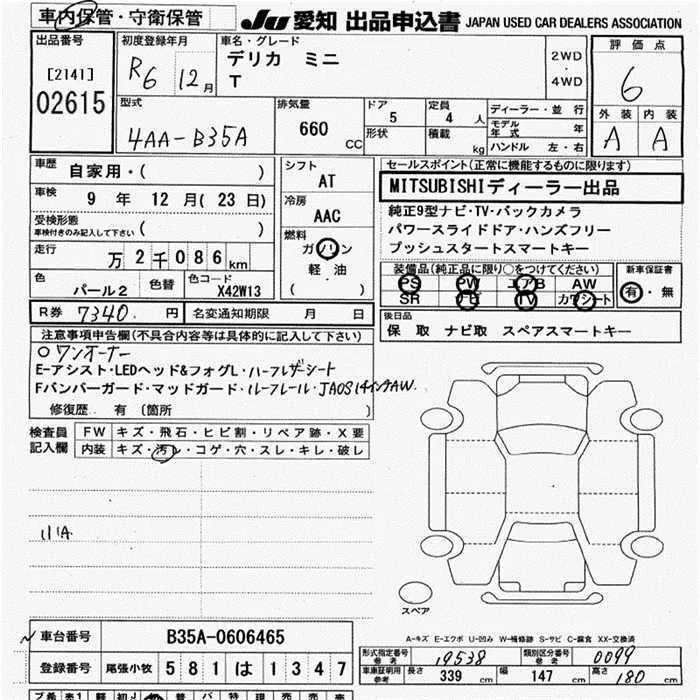 車内保管・守衛保管
JU 愛知 出品申込書 JAPAN USED CAR DEALERS ASSOCIATION
出品番号
[2141]
02615
初度登録年月
R6 12月
車名・グレード
デリカ ミニ
T
2WD
・
4WD
評価点
6
外装 内装
A A
型式
4AA-B35A
排気量
660 CC
ドア
5
形状
定員
4 人
積載
kg
ディーラー・並行
モデル年式 年
ハンドル 左・右
車歴 自家用・( )
車検 9 年 12 月 ( 23 日)
受検形態
車検付きのみ記入して下さい ( )
走行 万 2千086km
色 パール2
色替
色コード X42W13
シフト
AT
冷房
AAC
燃料
ガソリン
軽・油
( )
セールスポイント(正常に機能するものに限ります)
MITSUBISHIディーラー出品
純正9型ナビ・TV・バックカメラ
パワースライドドア・ハンズフリー
プッシュスタートスマートキー
装備品(純正品に限り○をつけてください)
PS PW エアB AW
SR ナビ TV カワシート
新車保証書
有・無
R券 7340. 円
名変通知期限 月 日
後日品
保 取 ナビ取 スペアスマートキー
注意事項申告欄(不具合内容等は具体的に記入して下さい)
○ワンオーナー
E-アシスト・LEDヘッド&フォグL・ハーフレザーシート
Fバンパーガード・マッドガード・ルーフレール・JAOS14インチAW.
修復歴 有 (箇所 )
検査員記入欄
FW キズ・飛石・ヒビ割・リペア跡・X要
内装 キズ・汚レ・コゲ・穴・スレ・キレ・破レ
スペア
A-キズ E-エクボ U-凹み W-補修跡 S-サビ C-腐食 XX-交換済
車台番号 B35A-0606465
登録番号 尾張小牧 581 は 1347
形式指定番号 参考 19538
類別区分番号 参考 0099
車庫証明用 参考 長さ 339 幅 147 高さ 180 cm